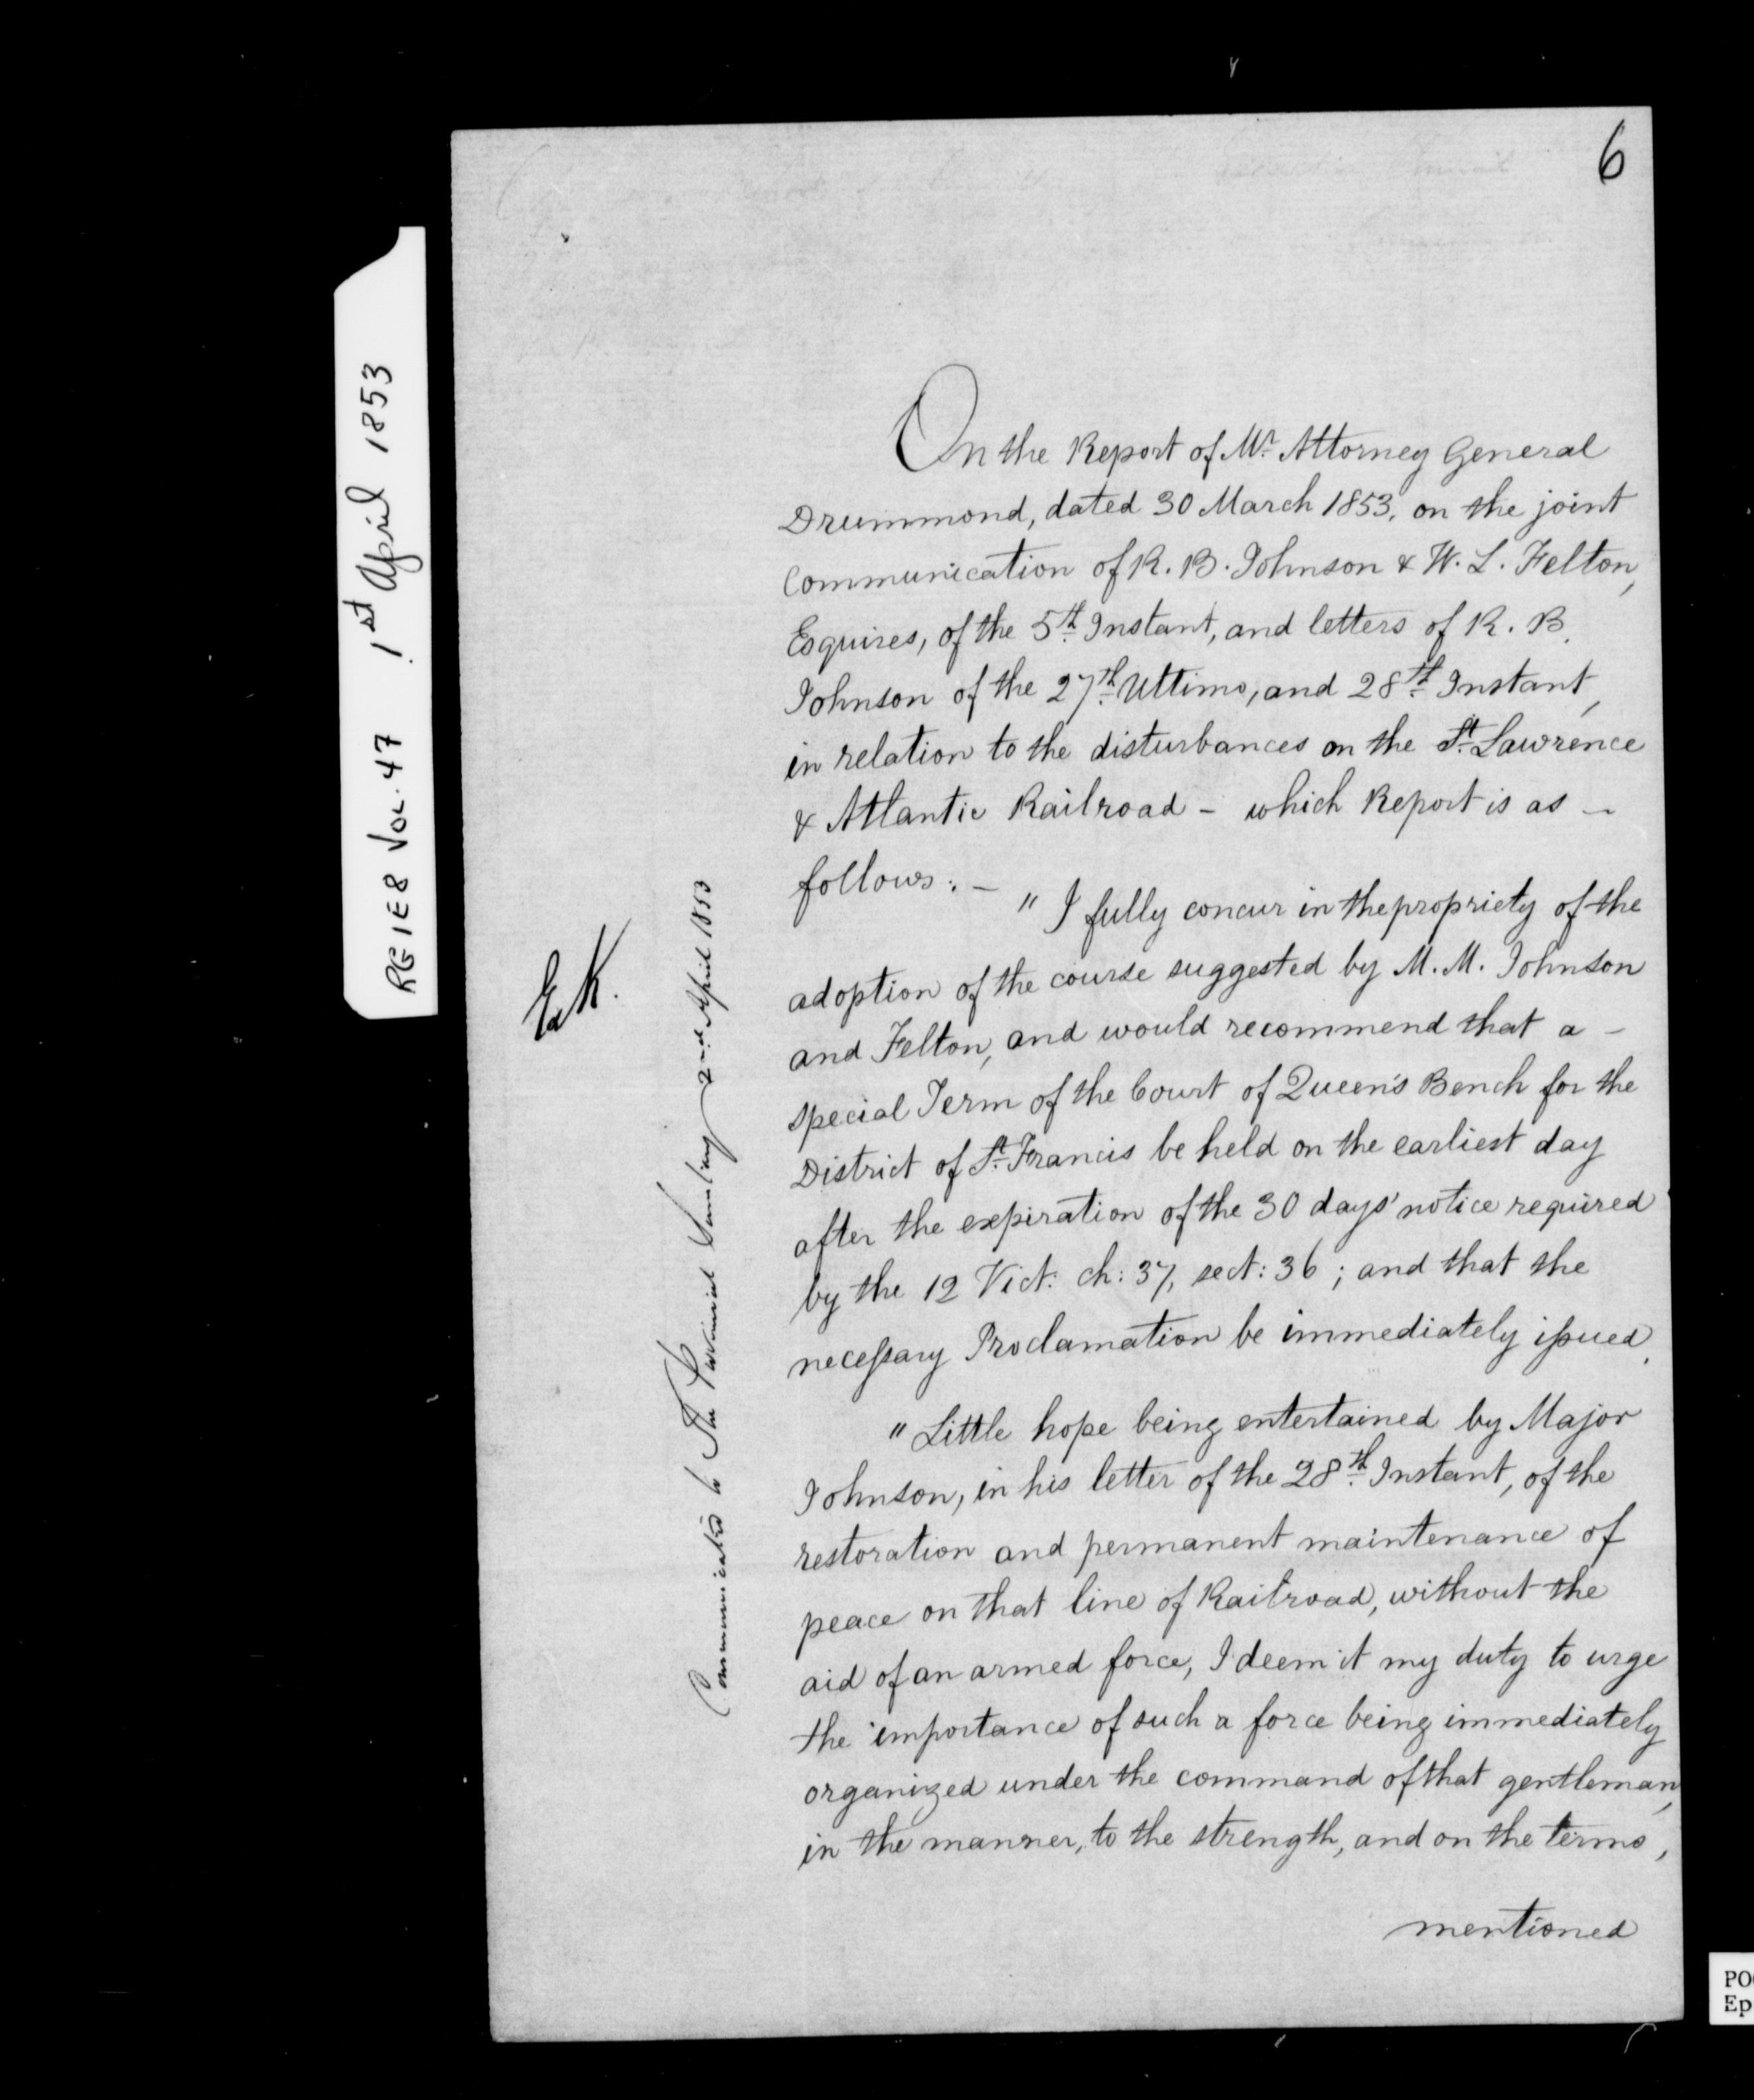 6
RG1E8 Vol. 47 1st April 1853
On the Report of Mr. Attorney General
Drummond, dated 30 March 1853, on the joint
Communication of R. B. Johnson & W. L. Felton,
Esquires, of the 5th Instant, and letters of R. B.
Johnson of the 27th Ultimo, and 28th Instant,
in relation to the disturbances on the St. Lawrence
& Atlantic Railroad – which Report is as –
follows: –
" I fully concur in the propriety of the
adoption of the course suggested by M. M. Johnson
and Felton, and would recommend that a –
special Term of the Court of Queen's Bench for the
District of St. Francis be held on the earliest day
after the expiration of the 30 days' notice required
by the 12 Vict: ch: 37, sect: 36; and that the
necessary Proclamation be immediately issued.
" Little hope being entertained by Major
Johnson, in his letter of the 28th Instant, of the
restoration and permanent maintenance of
peace on that line of Railroad, without the
aid of an armed force, I deem it my duty to urge
the importance of such a force being immediately
organized under the command of that gentleman,
in the manner, to the strength, and on the terms,
mentioned
Ex K.
Communicated to The Provincial Secretary 2nd April 1853
PO
Ep